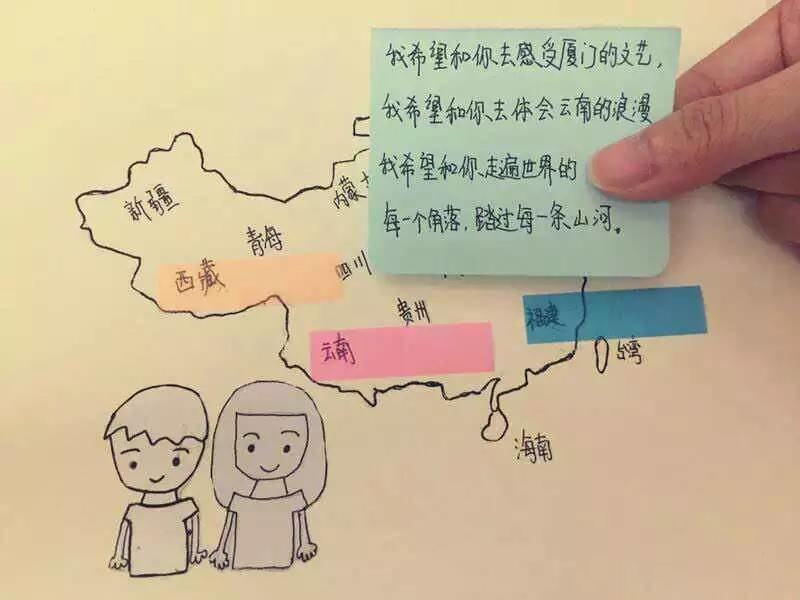 我希望和你去感受厦门的文艺,
我希望和你去体会云南的浪漫
我希望和你走遍世界的
每一个角落,踏过每一条山河。
新疆
内蒙
青海
西藏
四川
贵州
福建
云南
台湾
海南